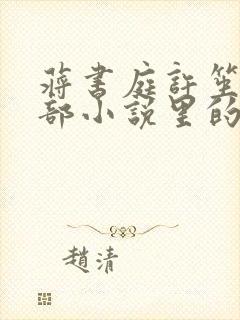 蔣書庭許笙
部小說里的
趙清